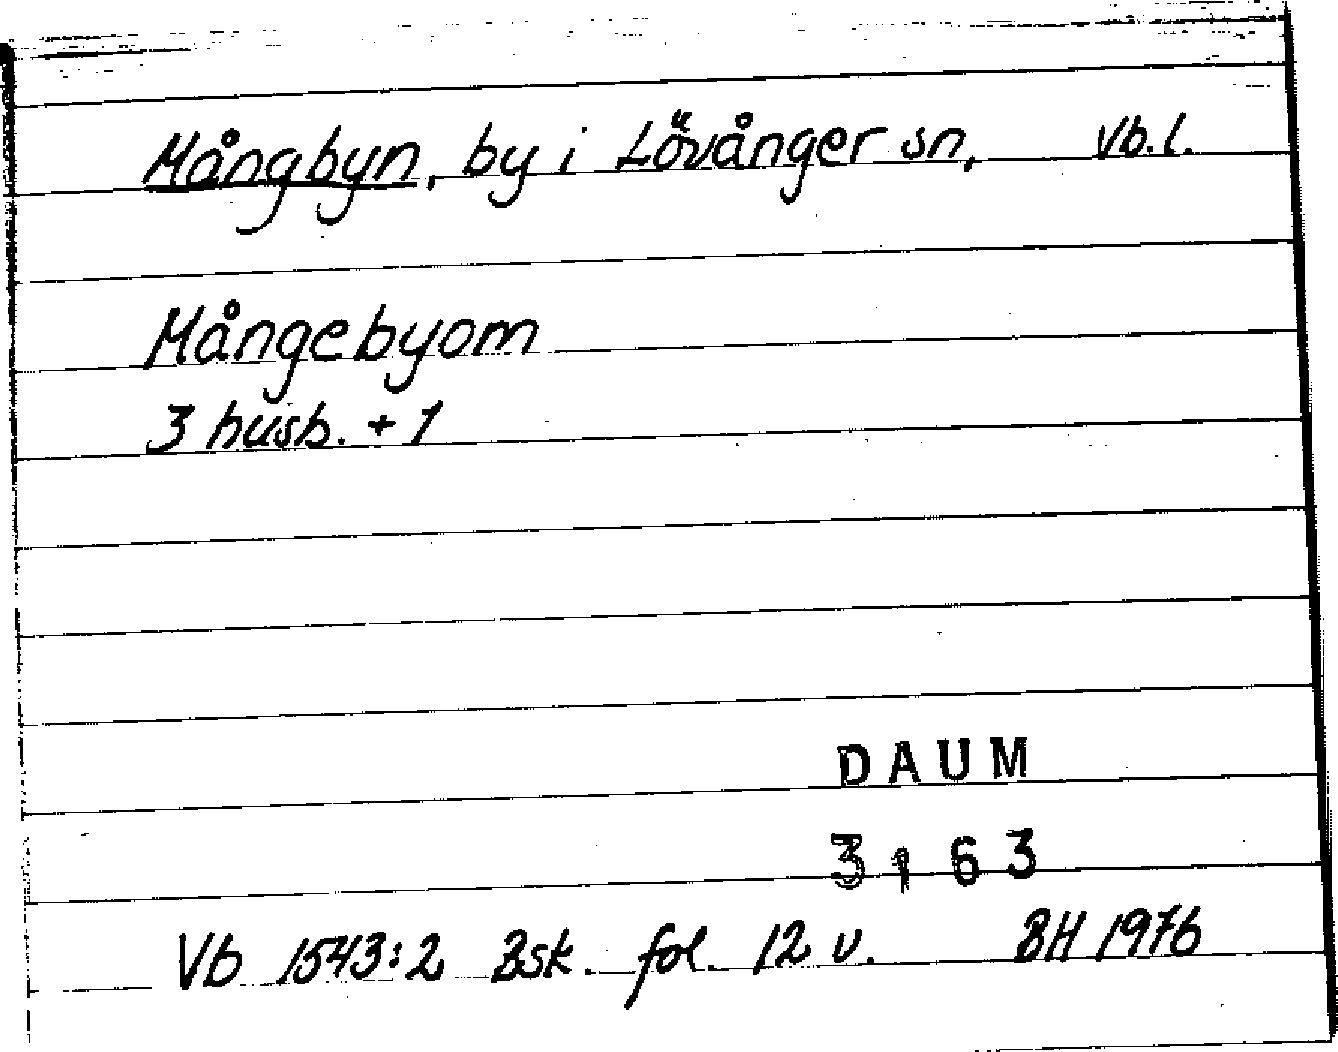 Mångbyn, by i Lövånger sn, Vb.l.
Mångebyom
3 husb. + 1
DAUM
3163
Vb 1543:2 Bsk. fol. 12 v. BH 1976